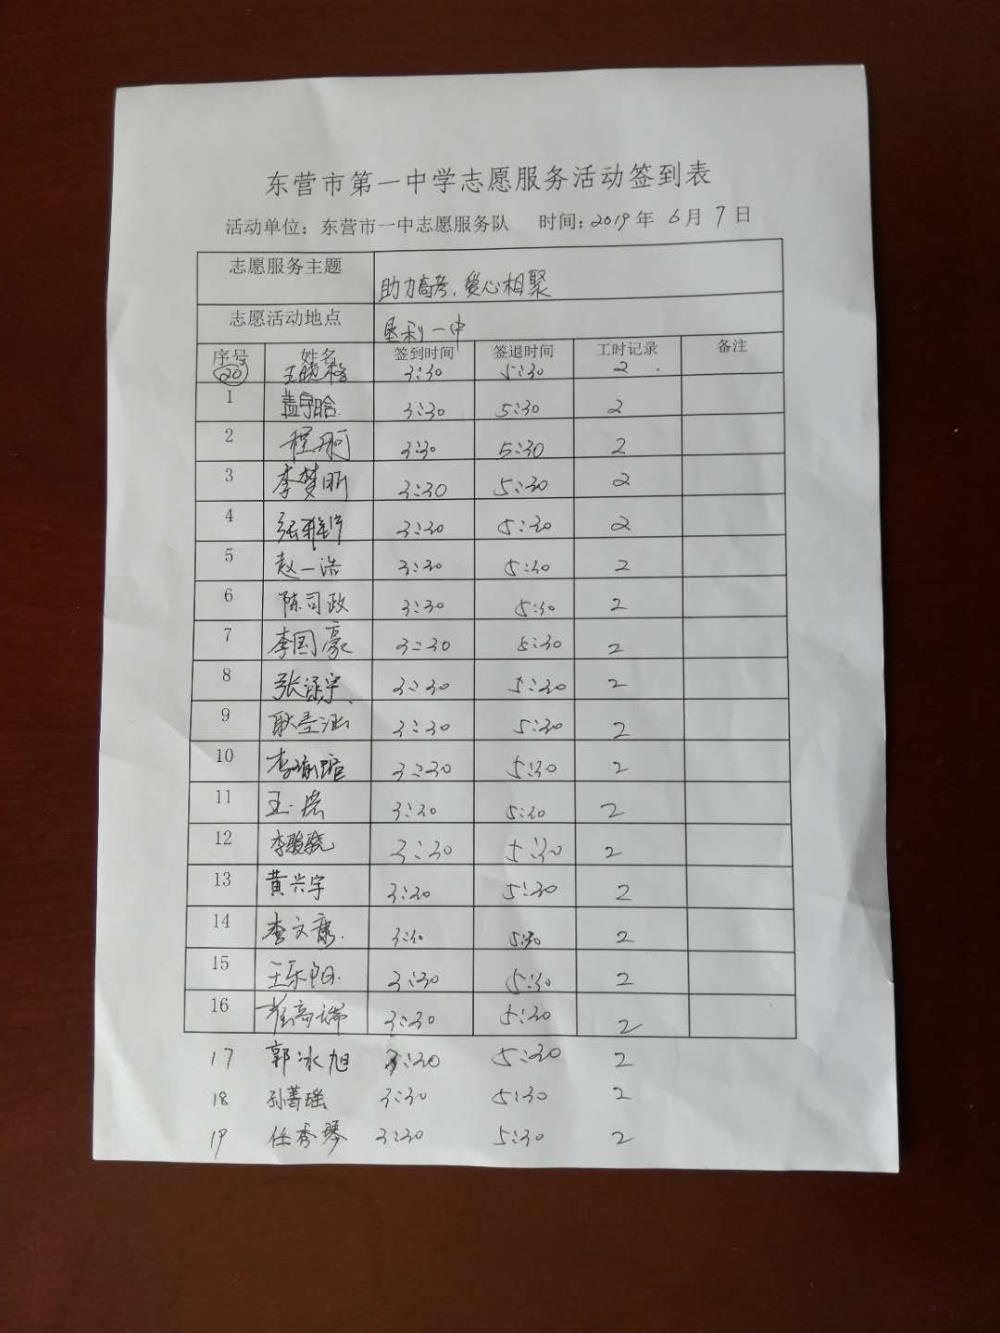 东营市第一中学志愿服务活动签到表
活动单位：东营市一中志愿服务队 时间：2019年 6月 7日
志愿服务主题 助力高考，爱心相聚
志愿活动地点 垦利一中
序号 姓名 签到时间 签退时间 工时记录 备注
20 王晓格 3:30 5:30 2
1 孟宇晗 3:30 5:30 2
2 程珂 3:30 5:30 2
3 李梦昕 3:30 5:30 2
4 张雅 3:30 5:30 2
5 赵一浩 3:30 5:30 2
6 陈司政 3:30 5:30 2
7 李国豪 3:30 5:30 2
8 张 宇 3:30 5:30 2
9 耿 3:30 5:30 2
10 李 3:30 5:30 2
11 王 3:30 5:30 2
12 李骏骁 3:30 5:30 2
13 黄兴宇 3:30 5:30 2
14 李文 3:30 5:30 2
15 王乐阳 3:30 5:30 2
16 崔高瑞 3:30 5:30 2
17 郭冰旭 3:30 5:30 2
18 孙菁瑶 3:30 5:30 2
19 任秀琴 3:30 5:30 2